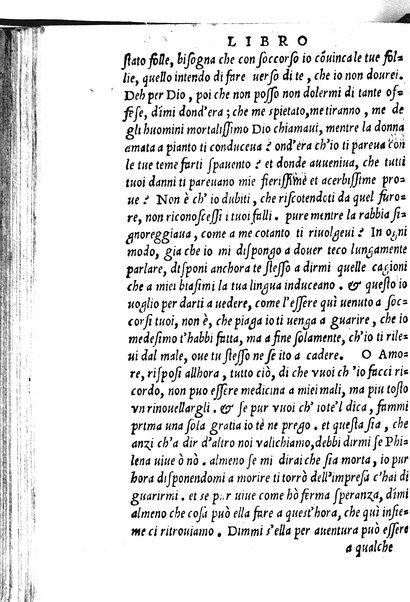 LIBRO
stato folle, bisogna che con soccorso io cōuinca le tue fol-
lie, quello intendo di fare uerso di te, che io non dourei.
Deh per Dio, poi che non posso non dolermi di tante of-
fese, dimi dond'era; che me spietato, me tiranno, me de
gli huomini mortalissimo Dio chiamaui, mentre la donna
amata a pianto ti conduceua? ond'era ch'io ti pareua con
le tue teme farti spauento? et donde aueniua, che tutti
tuoi danni ti pareuano mie fierissime et acerbissime pro-
ue? Non è ch'io dubiti, che riscotendoti da quel furo-
re, non riconoscessi i tuoi falli. pure mentre la rabbia si-
gnoreggiaua, come a me cotanto ti riuolgeui? In ogni
modo, gia che io mi dispongo a douer teco lungamente
parlare, disponi anchora te stesso a dirmi quelle cagioni
che a miei biasimi la tua lingua induceano. & questo io
uoglio per darti a uedere, come l'essere quì uenuto a soc-
corsi tuoi, non è, che piaga io ti uenga a guarire, che io
medesimo t'habbi fatta, ma a fine solamente, ch'io ti rile-
ui dal male, oue tu stesso ne se ito a cadere. O Amo-
re, risposi allhora, tutto ciò, di che vuoi ch'io facci ri-
cordo, non puo essere medicina a miei mali, ma piu tosto
vn rinouellargli. & se pur vuoi ch'io te'l dica, fammi
prima una sola gratia io te ne prego. et questa sia, che
anzi ch'a dir d'altro noi valichiamo, debbi dirmi se Phi-
lena uiue ò nò. almeno se mi dirai che sia morta, io pur
hora disponendomi a morire ti torrò dell'impresa c'hai di
guarirmi. et se pur uiue come hò ferma speranza, dimi
almeno che cosa può ella fare a quest'hora, che quì insie-
me ci ritrouiamo. Dimmi s'ella per auentura può essere
a qualche